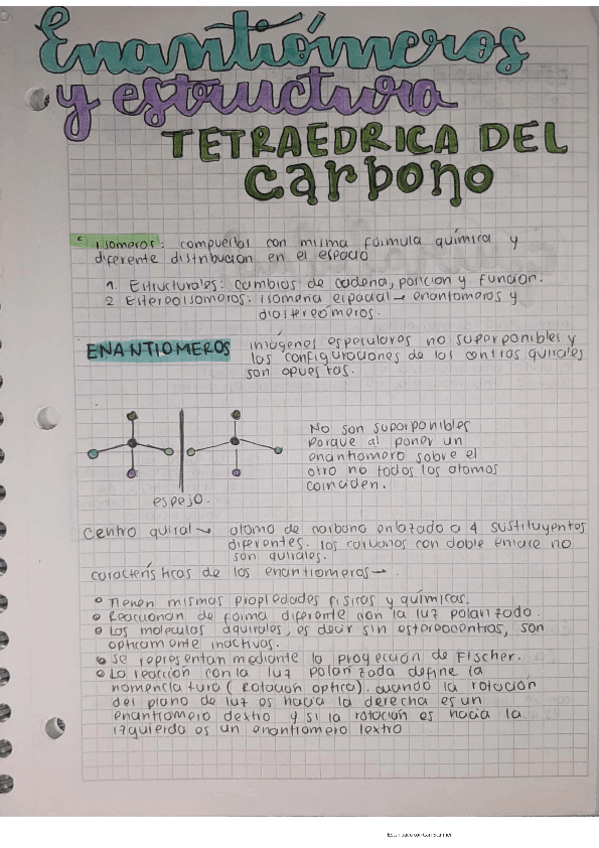 Enantiómeros
y estructura
TETRAEDRICA DEL
carbono
isomeros: compuestos con misma fórmula química y
diferente distribucion en el espacio
1. Estructurales: cambios de cadena, posicion y funcion.
2 Estereoisomeros: isomeria espacial → enantomeros y
diastereómeros.
ENANTIOMEROS
imágenes especulares no superponibles y
las configuraciones de los centros quirales
son opuestas.
No son superponibles
porque al poner un
enantiomero sobre el
otro no todos los atomos
coinciden.
espejo.
Centro quiral → atomo de carbono enlazado a 4 sustituyentes
diferentes. los carbonos con doble enlace no
son quirales.
características de los enantiomeros → .
Tienen mismas propiedades fisicas y químicas.
Reaccionan de forma diferente con la luz polarizada.
Las moleculas aquirales, es decir sin estereocentros, son
opticamente inactivas.
Se representan mediante la proyección de Fischer.
La reacción con la luz polarizada define la
nomenclatura (rotación optica). cuando la rotación
del plano de luz es hacia la derecha es un
enantiomero dextro y si la rotación es hacia la
izquierda es un enantiomero lextro